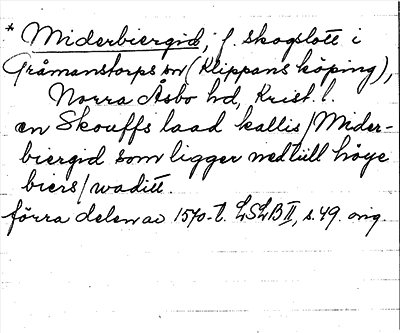 * Miderbiergid, f. skogslott i
Gråmanstorps sn (Klippans köping),
Norra Åsbo hd, Krist. l.
en Skouffs laad kallis / Mider-
biergid som ligger nedtiill höye
biers / waditt.
förra delen av 1570-t. LSLB II, s. 49. orig.